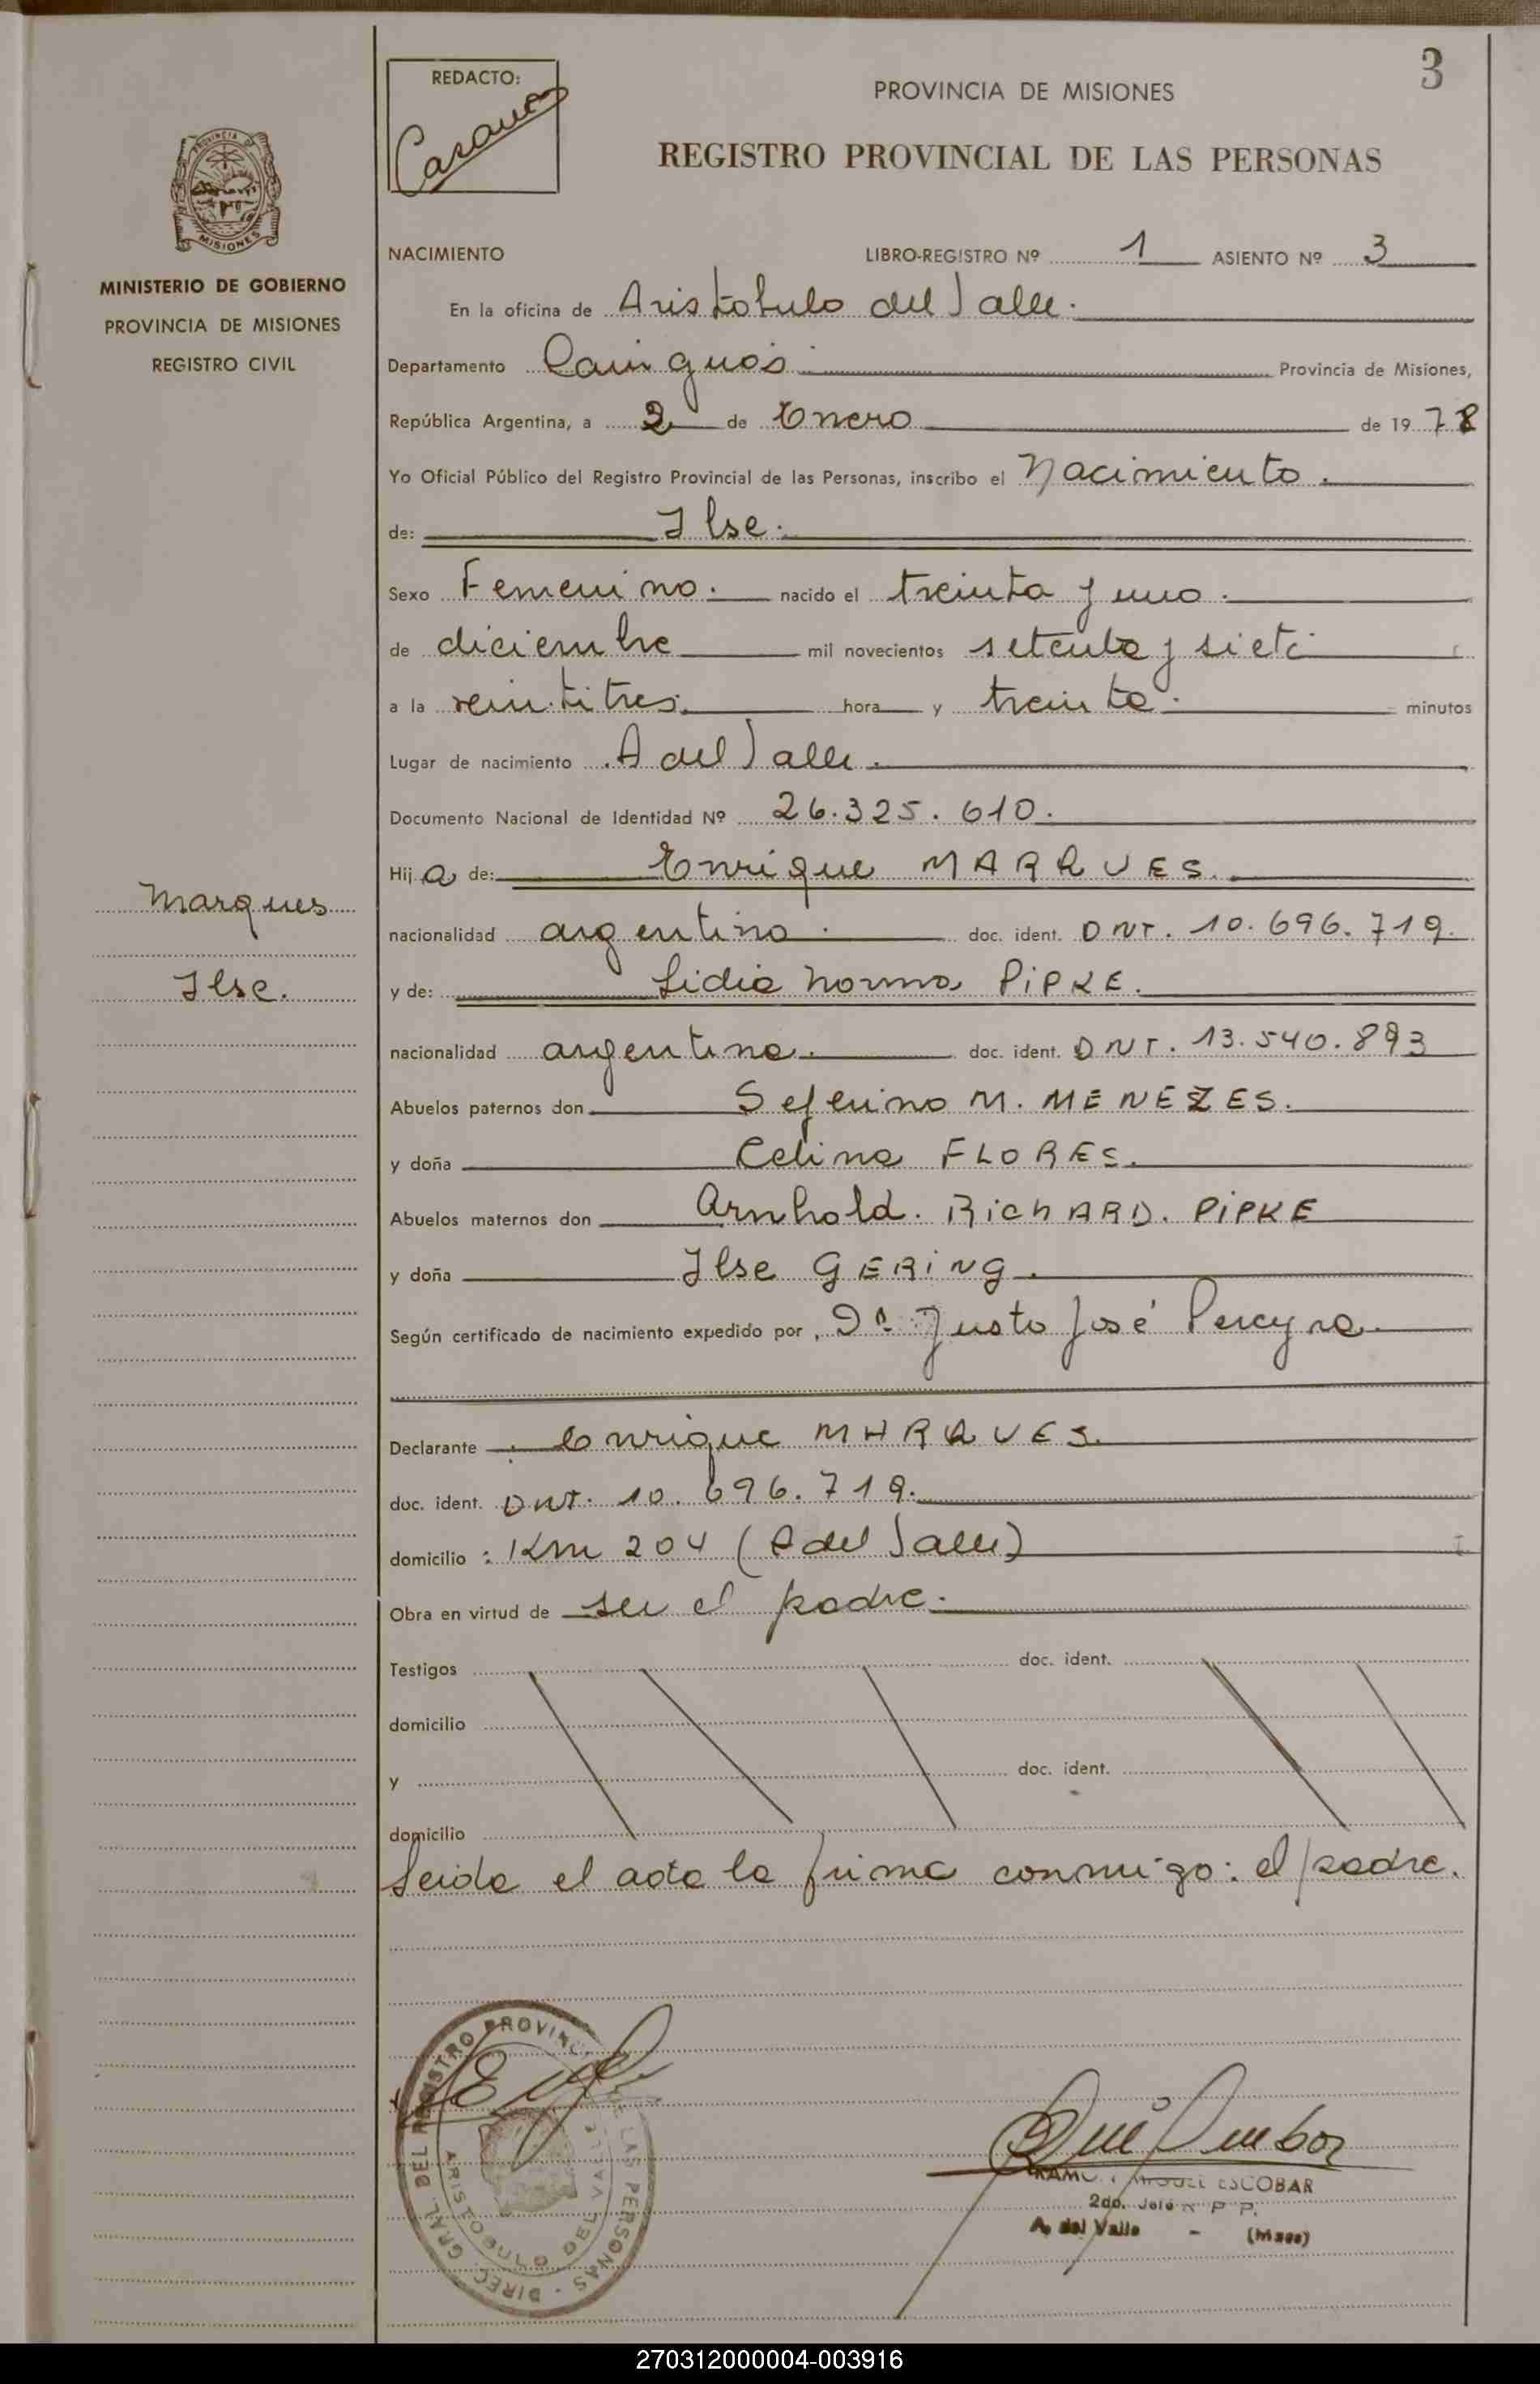 3
REDACTO:
PROVINCIA DE MISIONES
REGISTRO PROVINCIAL DE LAS PERSONAS
PROVINCIA DE
MISIONES
MINISTERIO DE GOBIERNO
PROVINCIA DE MISIONES
REGISTRO CIVIL
NACIMIENTO LIBRO-REGISTRO Nº 1 ASIENTO Nº 3
En la oficina de Aristobulo del Valle.
Departamento Cainguás Provincia de Misiones,
República Argentina, a 2 de Enero de 1978
Yo Oficial Público del Registro Provincial de las Personas, inscribo el Nacimiento.
de: Ilse.
Sexo Femenino. nacido el treinta y uno.
de diciembre mil novecientos setenta y siete
a la veintitres. hora y treinta. minutos
Lugar de nacimiento A del Valle.
Documento Nacional de Identidad Nº 26.325.610.
Hija de: Enrique MARQUES.
Marques
nacionalidad argentino. doc. ident. DNI. 10.696.719.
Ilse.
y de: Lidia Norma PiPKE.
nacionalidad argentina. doc. ident. DNI. 13.540.893
Abuelos paternos don Seferino M. MENEZES.
y doña Celina FLORES.
Abuelos maternos don Arnhold. RichARD. PiPKE
y doña Ilse GERiNg.
Según certificado de nacimiento expedido por, Dr. Justo José Pereyra
Declarante Enrique MARQUES.
doc. ident. DNI. 10.696.719.
domicilio : Km 204 (A del Valle)
Obra en virtud de ser el padre.
Testigos doc. ident.
domicilio
y doc. ident.
domicilio
Leida el acta la firma conmigo: el padre.
DIREC. GRAL. DEL REGISTRO PROVINC. DE LAS PERSONAS
ARISTOBULO DEL VALLE
RAMON MIGUEL ESCOBAR
2do. Jefe R P P.
A. del Valle - (Mnes)
270312000004-003916